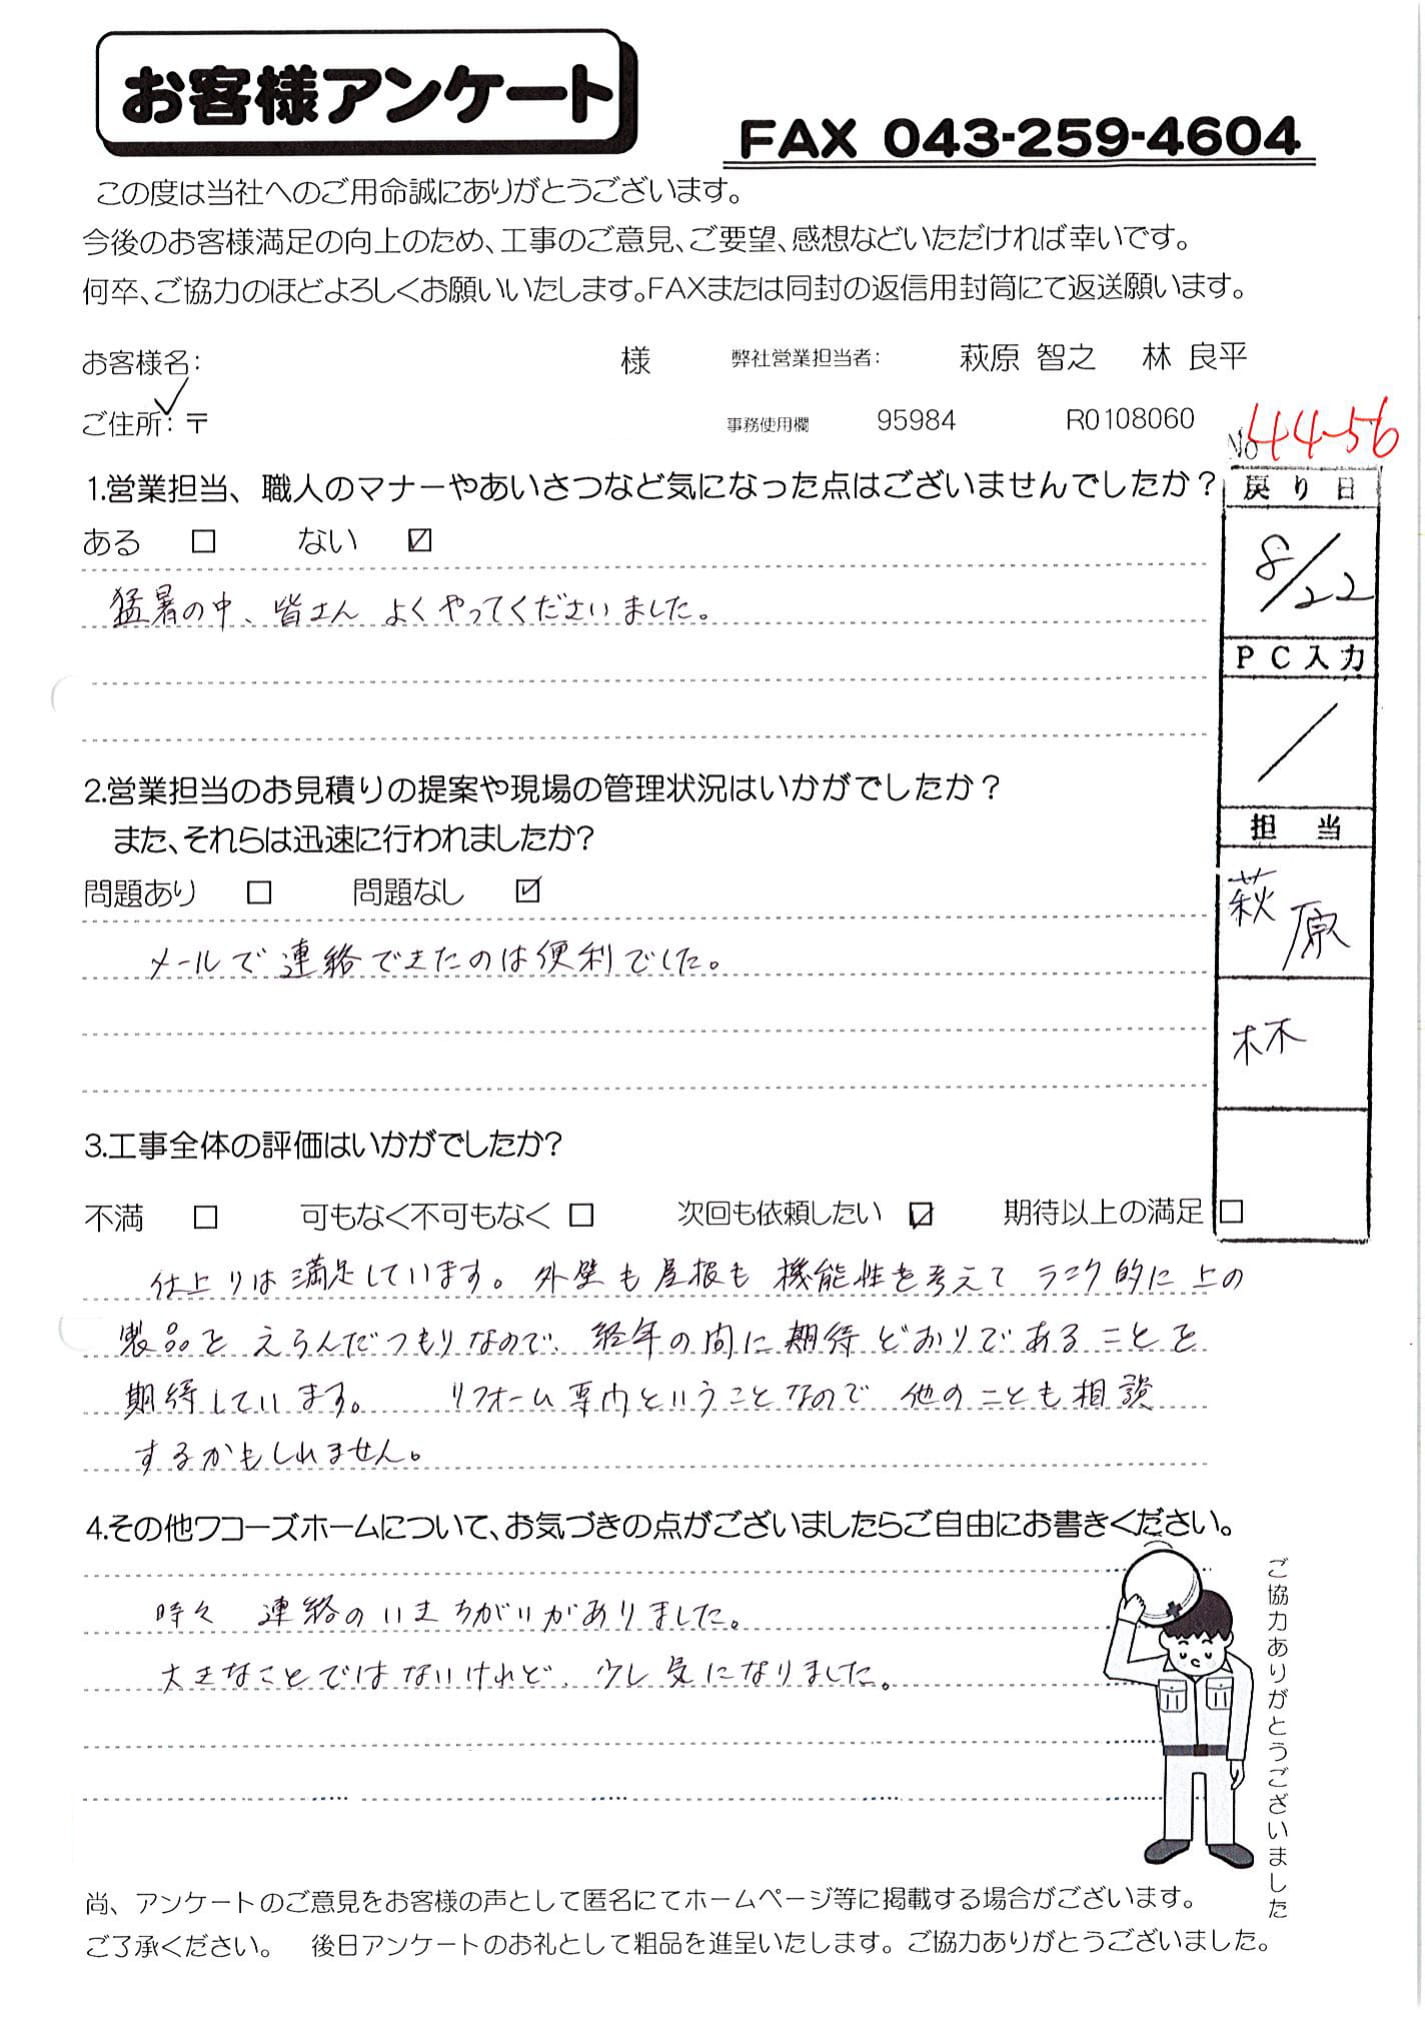 お客様アンケート
FAX 043-259-4604
この度は当社へのご用命誠にありがとうございます。
今後のお客様満足の向上のため、工事のご意見、ご要望、感想などいただければ幸いです。
何卒、ご協力のほどよろしくお願いいたします。FAXまたは同封の返信用封筒にて返送願います。
お客様名: 様 弊社営業担当者: 萩原 智之 林 良平
ご住所:〒 事務使用欄 95984 R0108060
No 44-56
1.営業担当、職人のマナーやあいさつなど気になった点はございませんでしたか?
戻り日
ある □ ない ☑
8/22
猛暑の中、皆さん よくやってくださいました。
PC入力
/
2.営業担当のお見積りの提案や現場の管理状況はいかがでしたか?
また、それらは迅速に行われましたか?
担当
問題あり □ 問題なし ☑
萩原
メールで連絡できたのは便利でした。
林
3.工事全体の評価はいかがでしたか?
不満 □ 可もなく不可もなく □ 次回も依頼したい ☑ 期待以上の満足 □
仕上りは満足しています。外壁も屋根も機能性を考えてランク的に上の
製品をえらんだつもりなので、経年の間に期待どおりであることを
期待しています。 リフォーム専門ということなので他のことも相談
するかもしれません。
4.その他ワコーズホームについて、お気づきの点がございましたらご自由にお書きください。
時々 連絡のいきちがいがありました。
大きなことではないけれど、少し気になりました。
ご協力ありがとうございました
尚、アンケートのご意見をお客様の声として匿名にてホームページ等に掲載する場合がございます。
ご了承ください。 後日アンケートのお礼として粗品を進呈いたします。ご協力ありがとうございました。